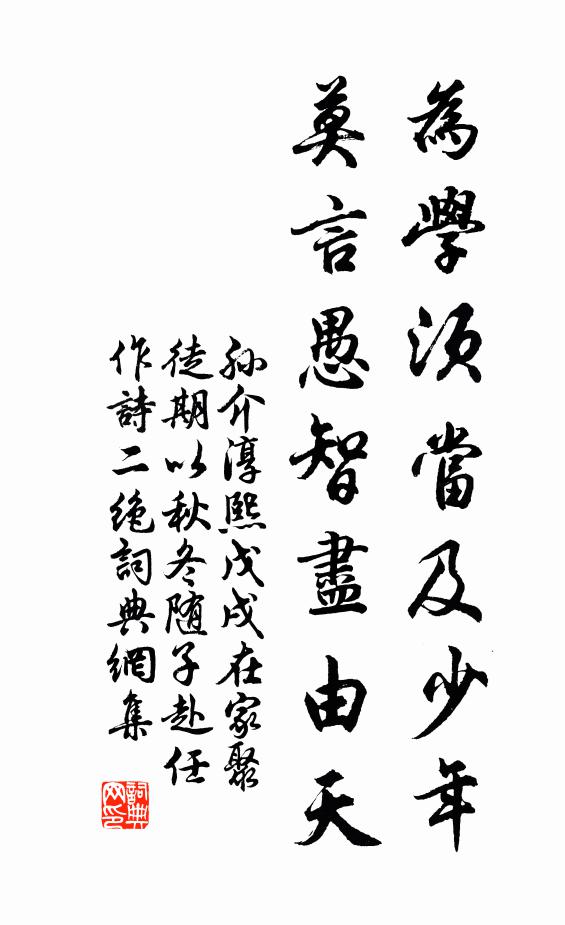 為學須當及少年
莫言愚智盡由天
孫介淳熙戊戌在家聚
徒期以秋冬随子赴任
作詩二絶詞典網集
詞典网印